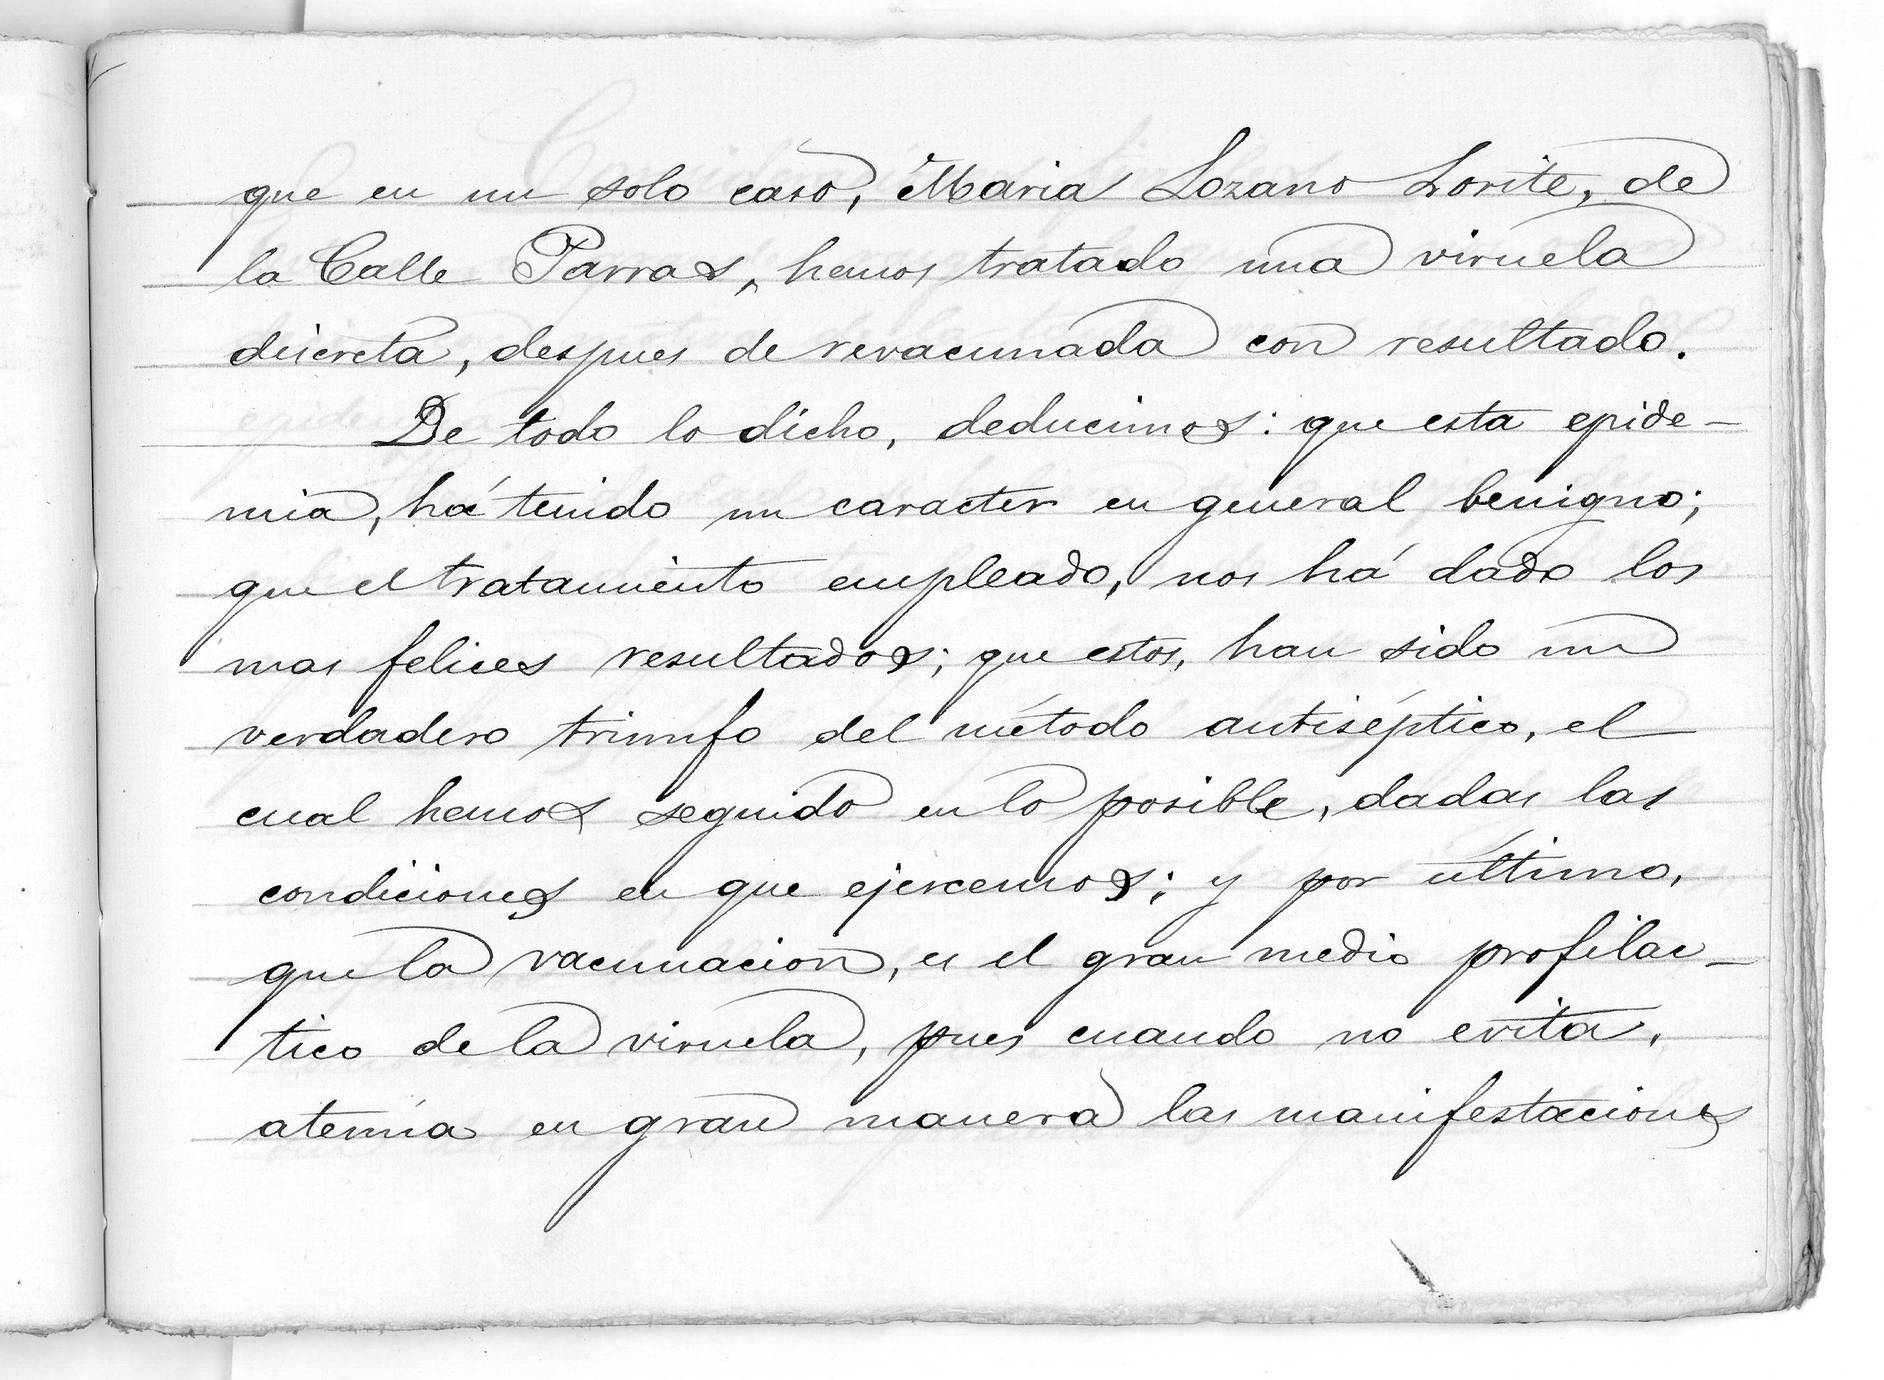 que en un solo caso, Maria Lozano Lorite, de
la Calle Parras, hemos tratado una viruela
discreta, despues de revacunada con resultado.
De todo lo dicho, deducimos: que esta epide-
mia, há tenido un caracter en general benigno;
que el tratamiento empleado, nos há dado los
mas felices resultados; que estos, han sido un
verdadero triunfo del método antiséptico, el
cual hemos seguido en lo posible, dadas las
condiciones en que ejercemos; y por último,
que la vacunacion, es el gran medio profilac-
tico de la viruela, pues cuando no evita,
atenúa en gran manera las manifestaciones